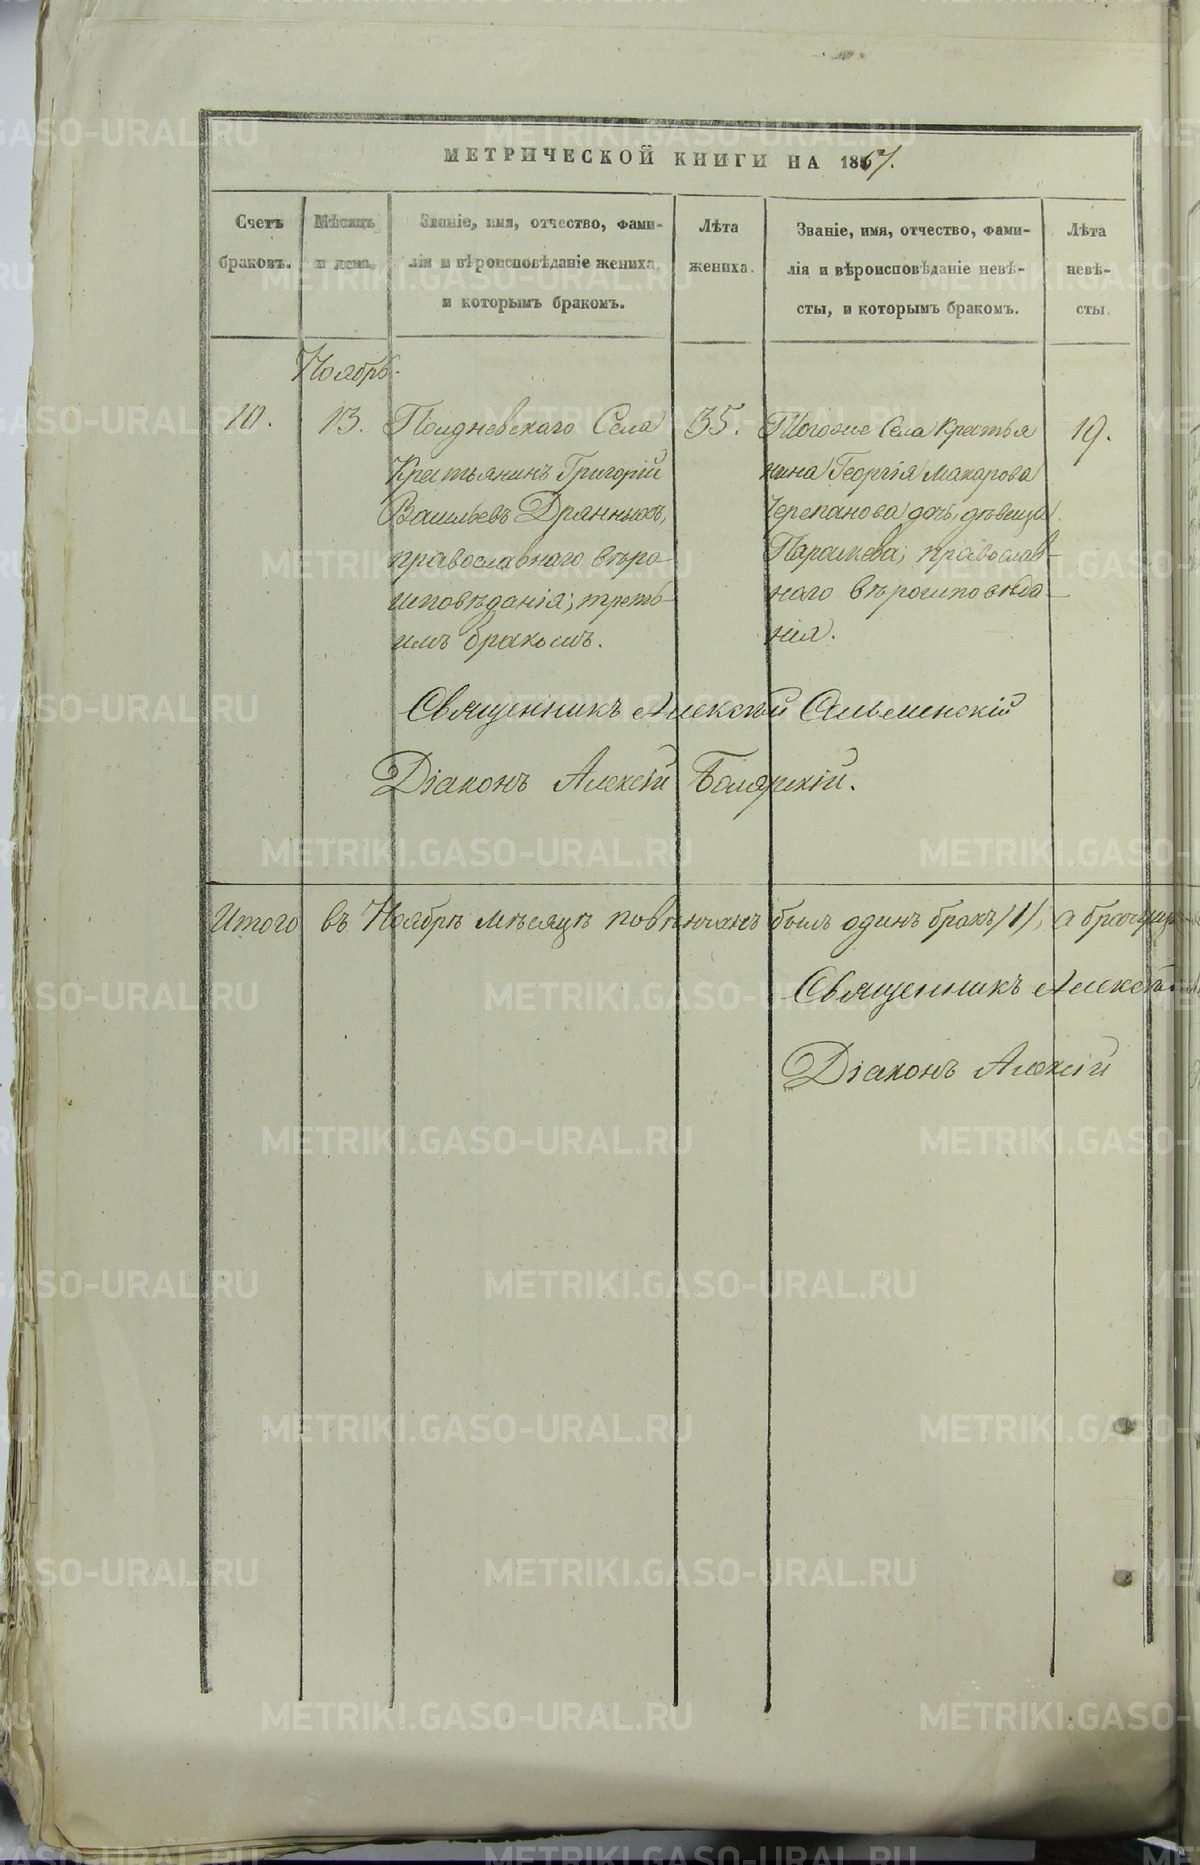 МЕТРИЧЕСКОЙ КНИГИ НА 1867.
Счетъ браковъ.
Мѣсяцъ и день.
Званіе, имя, отчество, фами-
лія и вѣроисповѣданіе жениха,
и которымъ бракомъ.
Лѣта жениха.
Званіе, имя, отчество, фами-
лія и вѣроисповѣданіе невѣ-
сты, и которымъ бракомъ.
Лѣта невѣ-
сты.
Ноябрь.
10.
13.
Полдневскаго Села
Крестьянинъ Григорій
Васильевъ Дрянныхъ,
православнаго вѣро-
исповѣданія; треть-
имъ бракомъ.
35.
Тогоже Села Крестья
нина Георгія Макарова
Черепанова дочь, дѣвица
Параскева; православ-
наго вѣроисповѣда-
нія.
19.
Священникъ Алексѣй
Діаконъ Алексій
Итого въ Ноябрѣ мѣсяцѣ повѣнчанъ былъ одинъ бракъ /1/, а
Священникъ Алексѣй
Діаконъ Алексій
METRIKI.GASO-URAL.RU